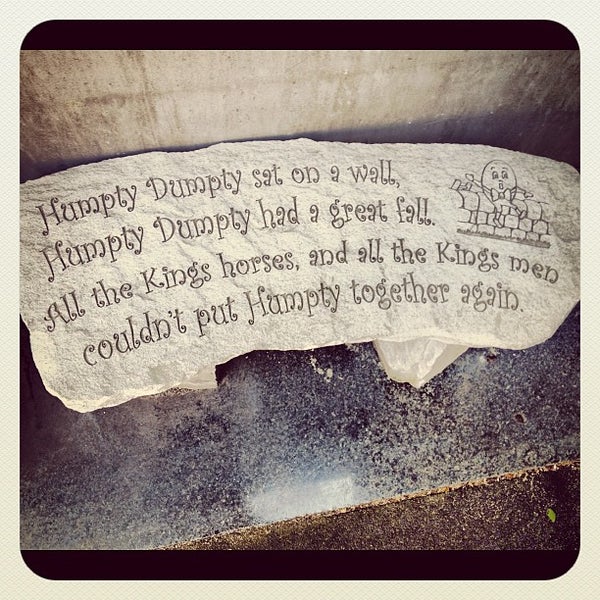 Humpty Dumpty sat on a wall,
Humpty Dumpty had a great fall.
All the Kings horses, and all the Kings men
couldn't put Humpty together again.